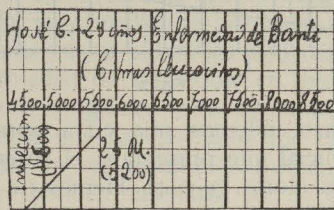 José C. - 29 años. Enfermedad de Banti
(Cifras leucocitos)
4500 5000 5500 6000 6500 7000 7500 8000 8500
inyección
25 M.
(5200)